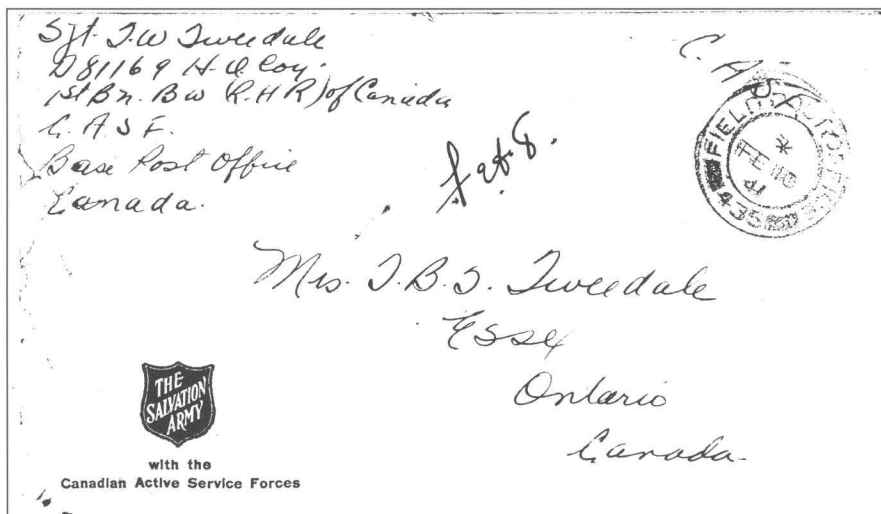 Sgt. T.W Tweedale
D81169 H.Q Coy.
1st Bn. BW (R.H.R) of Canada
C. A. S F.
Base Post Office
Canada.
Feb 8.
FIELD POST OFFICE
*
FE 10
41
435
Mrs. T.B.T. Tweedale
Essex
Ontario
Canada.
THE
SALVATION
ARMY
with the
Canadian Active Service Forces